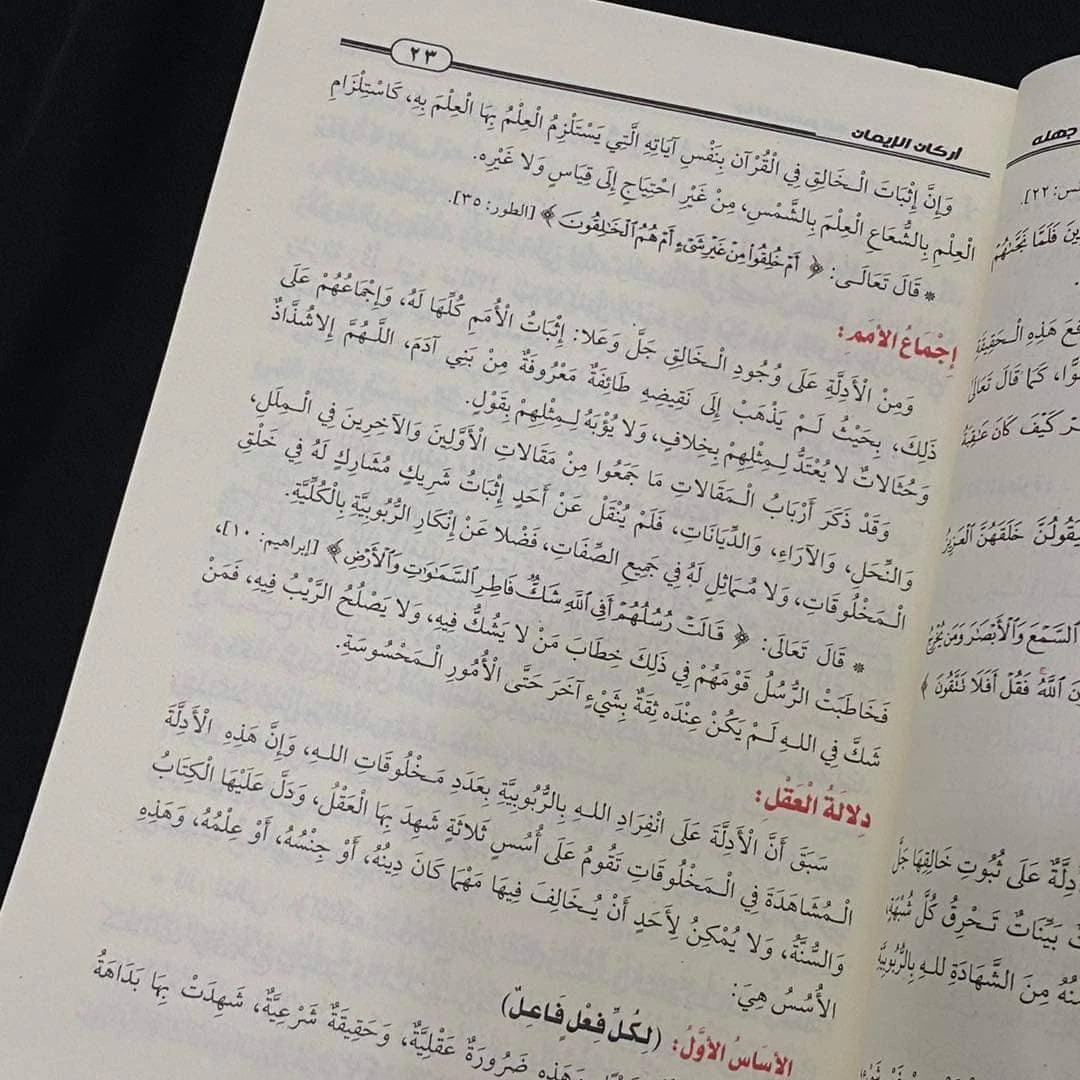 ٢٣
أركان الإيمان
وَإِنَّ إِثْبَاتَ الْخَالِقِ فِي الْقُرْآنِ بِنَفْسِ آيَاتِهِ الَّتِي يَسْتَلْزِمُ الْعِلْمُ بِهَا الْعِلْمَ بِهِ، كَاسْتِلْزَامِ
الْعِلْمِ بِالشُّعَاعِ الْعِلْمَ بِالشَّمْسِ، مِنْ غَيْرِ احْتِيَاجٍ إِلَى قِيَاسٍ وَلَا غَيْرِهِ.
* قَالَ تَعَالَى: ﴿ أَمْ خُلِقُوا مِنْ غَيْرِ شَيْءٍ أَمْ هُمُ الْخَالِقُونَ ﴾ [الطور: ٣٥].
إِجْمَاعُ الْأُمَمِ:
وَمِنْ الْأَدِلَّةِ عَلَى وُجُودِ الْخَالِقِ جَلَّ وَعَلا: إِثْبَاتُ الْأُمَمِ كُلِّهَا لَهُ، وَإِجْمَاعُهُمْ عَلَى
ذَلِكَ، بِحَيْثُ لَمْ يَذْهَبْ إِلَى نَقِيضِهِ طَائِفَةٌ مَعْرُوفَةٌ مِنْ بَنِي آدَمَ، اللَّهُمَّ إِلا شُذَّاذٌ
وَحُثَالَاتٌ لَا يُعْتَدُّ لِمِثْلِهِمْ بِخِلَافٍ، وَلَا يُؤْبَهُ لِمِثْلِهِمْ بِقَوْلٍ.
وَقَدْ ذَكَرَ أَرْبَابُ الْمَقَالَاتِ مَا جَمَعُوا مِنْ مَقَالَاتِ الْأَوَّلِينَ وَالْآخِرِينَ فِي الْمِلَلِ،
وَالنِّحَلِ، وَالْآرَاءِ، وَالدِّيَانَاتِ، فَلَمْ يُنْقَلْ عَنْ أَحَدٍ إِثْبَاتُ شَرِيكٍ مُشَارِكٍ لَهُ فِي خَلْقِ
الْمَخْلُوقَاتِ، وَلَا مُمَاثِلٍ لَهُ فِي جَمِيعِ الصِّفَاتِ، فَضْلا عَنْ إِنْكَارِ الرُّبُوبِيَّةِ بِالْكُلِّيَّةِ.
* قَالَ تَعَالَى: ﴿ قَالَتْ رُسُلُهُمْ أَفِي اللَّهِ شَكٌّ فَاطِرِ السَّمَاوَاتِ وَالْأَرْضِ ﴾ [إبراهيم: ١٠]،
فَخَاطَبَتْ الرُّسُلُ قَوْمَهُمْ فِي ذَلِكَ خِطَابَ مَنْ لَا يَشُكُّ فِيهِ، وَلَا يَصْلُحُ الرَّيْبُ فِيهِ، فَمَنْ
شَكَّ فِي اللهِ لَمْ يَكُنْ عِنْدَه ثِقَةٌ بِشَيْءٍ آخَرَ حَتَّى الْأُمُورِ الْمَحْسُوسَةِ.
دِلَالَةُ الْعَقْلِ:
سَبَقَ أَنَّ الْأَدِلَّةَ عَلَى انْفِرَادِ اللهِ بِالرُّبُوبِيَّةِ بِعَدَدِ مَخْلُوقَاتِ اللهِ، وَإِنَّ هَذِهِ الْأَدِلَّةَ
الْمُشَاهَدَةَ فِي الْمَخْلُوقَاتِ تَقُومُ عَلَى أُسُسٍ ثَلَاثَةٍ شَهِدَ بِهَا الْعَقْلُ، وَدَلَّ عَلَيْهَا الْكِتَابُ
وَالسُّنَّةُ، وَلَا يُمْكِنُ لِأَحَدٍ أَنْ يُخَالِفَ فِيهَا مَهْمَا كَانَ دِينُهُ، أَوْ جِنْسُهُ، أَوْ عِلْمُهُ، وَهَذِهِ
الْأُسُسُ هِيَ:
الأَسَاسُ الأَوَّلُ: (لِكُلِّ فِعْلٍ فَاعِلٌ)
وَهَذِهِ ضَرُورَةٌ عَقْلِيَّةٌ، وَحَقِيقَةٌ شَرْعِيَّةٌ، شَهِدَتْ بِهَا بَدَاهَةُ
جهله
٢٢].
فَلَمَّا نَجَّاهُمْ
هَذِهِ الْحَقِيقَةَ
كَمَا قَالَ تَعَالَى
كَيْفَ كَانَ عَاقِبَةُ
خَلَقَهُنَّ الْعَزِيزُ
السَّمْعَ وَالْأَبْصَارَ وَمَن يُخْرِجُ
اللَّهُ فَقُلْ أَفَلَا تَتَّقُونَ ﴾
عَلَى ثُبُوتِ خَالِقِهَا جَلَّ
بَيِّنَاتٌ تَحْرِقُ كُلَّ شُبْهَةٍ
مِنَ الشَّهَادَةِ للهِ بِالرُّبُوبِيَّةِ